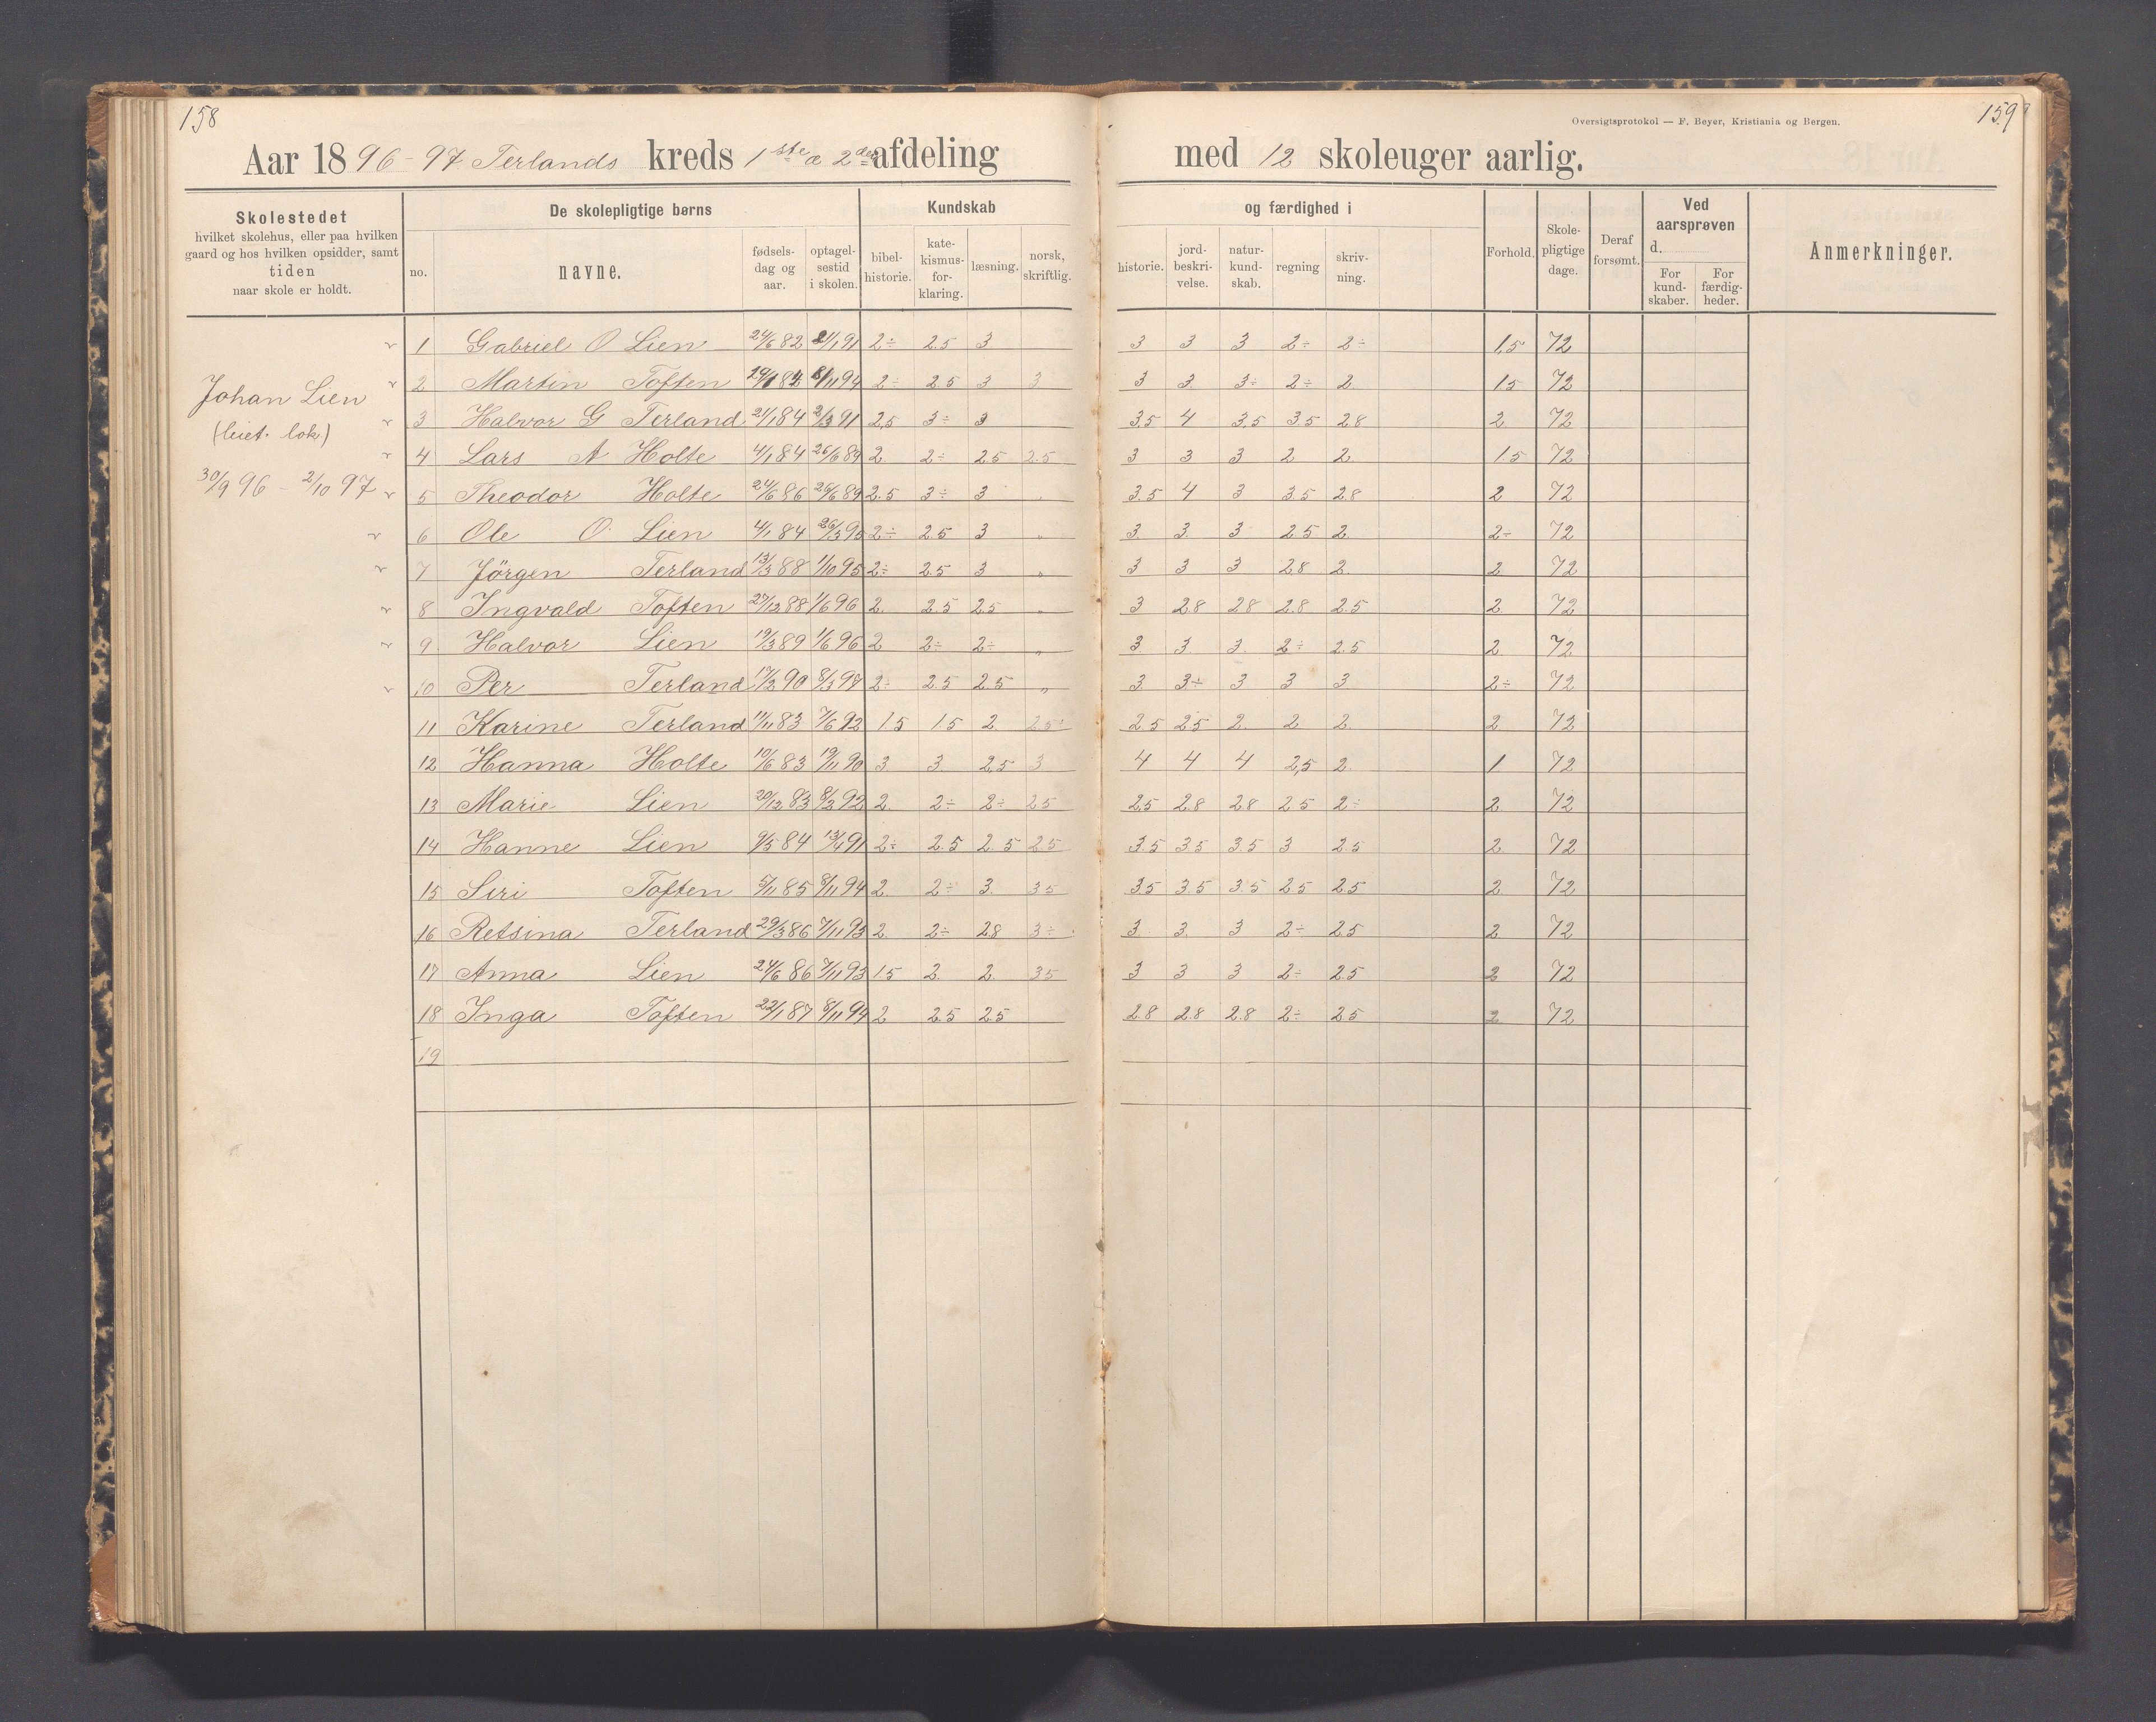 158
159
Oversigtsprotokol — F. Beyer, Kristiania og Bergen.
Aar 1896-97 Terlands kreds 1ste & 2den afdeling med 12 skoleuger aarlig.
Skolestedet
hvilket skolehus, eller paa hvilken
gaard og hos hvilken opsidder, samt
tiden
naar skole er holdt.
De skolepligtige børns
no.
navne.
fødsels-
dag og
aar.
optagel-
sestid
i skolen.
Kundskab
bibel-
historie.
kate-
kismus-
for-
klaring.
læsning.
norsk,
skriftlig.
og færdighed i
historie.
jord-
beskri-
velse.
natur-
kund-
skab.
regning
skriv-
ning.
Forhold.
Skole-
pligtige
dage.
Deraf
forsømt.
Ved
aarsprøven
d.
For
kund-
skaber.
For
færdig-
heder.
Anmerkninger.
Johan Lien
(leiet. lok.)
30/9 96 - 2/10 97
1 Gabriel O Lien 24/6 82 2/1 91 2÷ 2.5 3 3 3 3 2÷ 2÷ 1,5 72
2 Martin Toften 8/11 94 2÷ 2.5 3 3 3 3. 3÷ 2÷ 2 1.5 72
3 Halvor G Terland 21/1 84 2/3 91 2,5 3÷ 3 3.5 4 3.5 3.5 2.8 2 72
4 Lars A Holte 4/1 84 26/6 89 2. 2÷ 2.5 2.5 3 3 3 2 2. 1.5 72
5 Theodor Holte 24/6 86 26/6 89 2.5 3÷ 3 " 3.5 4 3 3.5 2.8 2 72
6 Ole O. Lien 4/1 84 26/3 95 2÷ 2.5 3 " 3. 3. 3 2.5 2. 2÷ 72
7 Jörgen Terland 13/3 88 1/10 95 2÷ 2.5 3 " 3 3 3 2.8 2. 2 72
8 Ingvald Toften 27/12 88 1/6 96 2. 2.5 2.5 " 3 2.8 2.8 2.8 2.5 2 72
9 Halvor Lien 19/3 89 1/6 96 2 2÷ 2÷ " 3. 3. 3. 2÷ 2.5 2. 72
10 Per Terland 17/2 90 8/3 97 2÷ 2.5 2.5 " 3. 3÷ 3 3 3 2÷ 72
11 Karine Terland 11/11 83 7/6 92 1.5 1.5 2. 2.5 2.5 2.5 2. 2 2. 2 72
12 Hanna Holte 10/6 83 19/11 90 3. 3. 2,5 3 4 4 4 2,5 2. 1 72
13 Marie Lien 20/12 83 8/3 92 2. 2÷ 2÷ 2.5 2.5 2.8 2.8 2.5 2÷ 2. 72
14 Hanne Lien 9/5 84 13/4 91 2÷ 2.5 2.5 2.5 3.5 3.5 3.5 3 2.5 2. 72
15 Siri Toften 5/11 85 8/11 94 2. 2÷ 3. 3.5 3.5 3.5 3.5 2.5 2.5 2 72
16 Retsina Terland 29/3 86 7/11 93 2. 2÷ 2.8 3÷ 3. 3. 3 2÷ 2.5 2 72
17 Anna Lien 24/6 86 7/11 93 1.5 2. 2. 3.5 3 3 3 2÷ 2.5 2 72
18 Inga Toften 22/1 87 8/11 94 2 2.5 2.5 2.8 2.8 2.8 2÷ 2.5 2 72
19